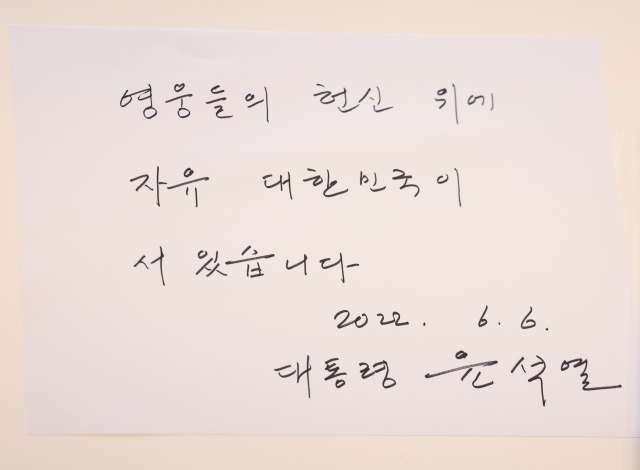 영웅들의 헌신 위에
자유 대한민국이
서 있습니다
2022. 6. 6.
대통령 윤석열